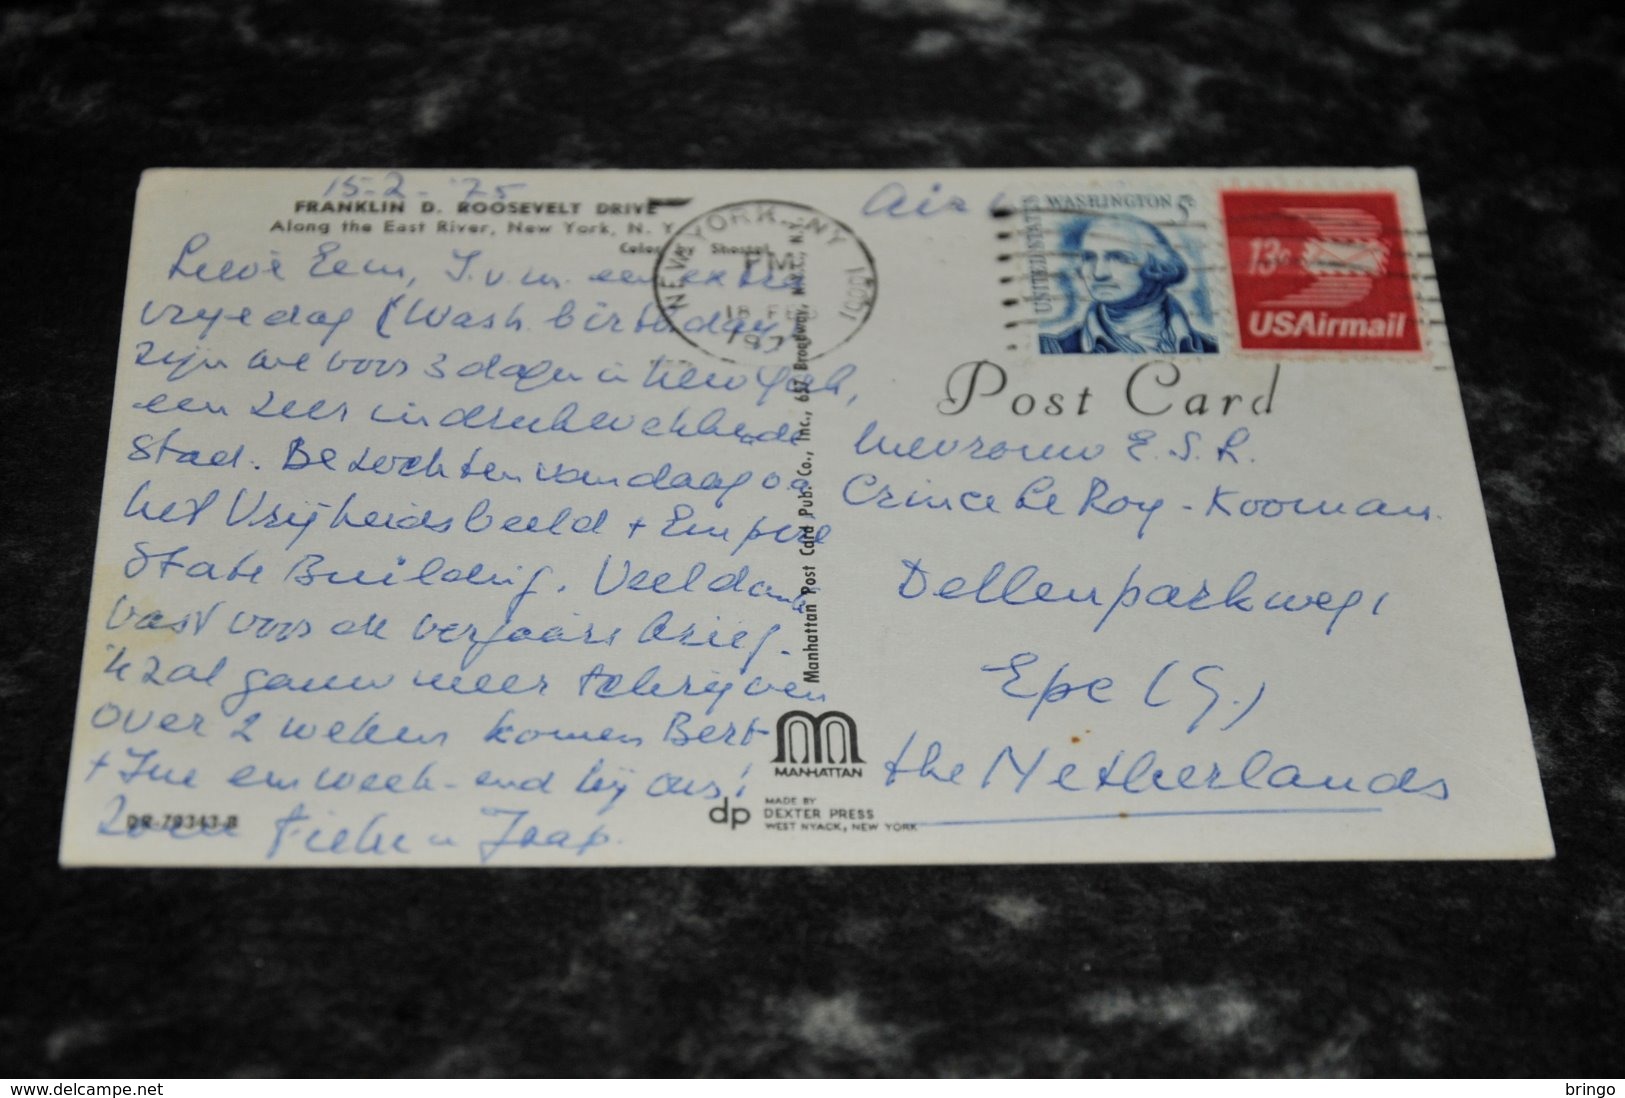 15-2-'75
FRANKLIN D. ROOSEVELT DRIVE
Along the East River, New York, N. Y.
Color by Shostal
Lieve Eem, I.v.m. een extra
vrije dag (Wash. birthday)
zijn we voor 3 dagen in New York,
een zeer indrukwekkende
stad. Bezochten vandaag o.a.
het Vrijheidsbeeld + Empire
State Building. Veel dank
vast voor de verjaars brief.
'k zal gauw meer schrijven
over 2 weken komen Bert
+ Ine een week-end bij ons!
en Jaap.
DR-79343-B
Manhattan Post Card Pub. Co., Inc., 657 Broadway, N.Y.C., N.Y.
MANHATTAN
dp
MADE BY
DEXTER PRESS
WEST NYACK, NEW YORK
NEW YORK, N.Y.
PM
18 FEB
Air
UNITED STATES
WASHINGTON 5c
13c
USAirmail
Post Card
Mevrouw E.S.R.
Crince Le Roy - Kooman.
Dellenparkweg,
Epe (G.)
the Netherlands
www.delcampe.net
bringo